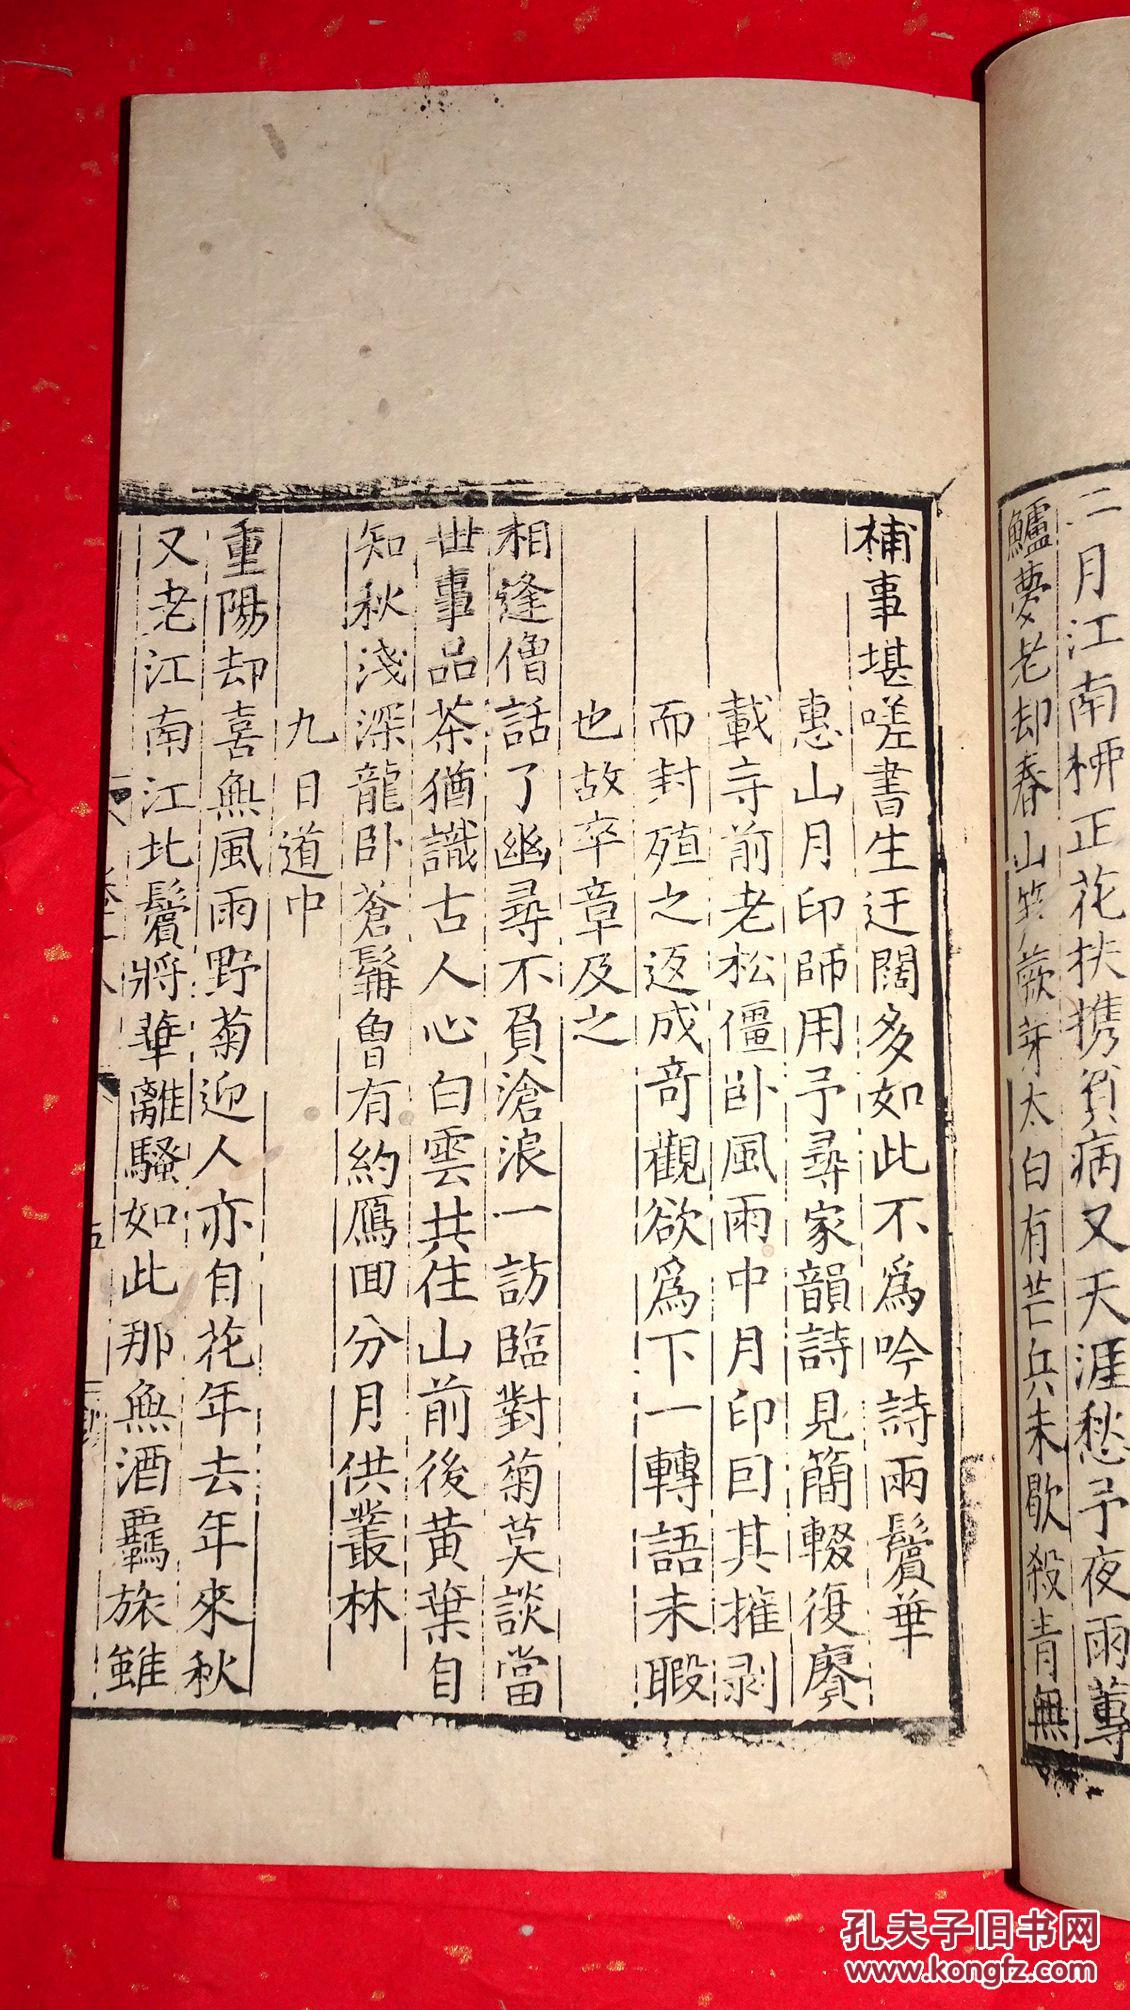 二月江南柳正花扶携貧病又天涯愁予夜雨蓴
鱸夢老却春山筍蕨芽太白有芒兵未歇殺青無
補事堪嗟書生迂闊多如此不爲吟詩兩鬢華
惠山月印師用予尋家韻詩見簡輟復賡
載寺前老松僵卧風雨中月印曰其摧剥
而封殖之返成竒觀欲爲下一轉語未暇
也故卒章及之
相逢僧話了幽尋不負滄浪一訪臨對菊莫談當
世事品茶猶識古人心白雲共住山前後黄葉自
知秋淺深龍卧蒼髯曾有約鴈回分月供叢林
九日道中
重陽却喜無風雨野菊迎人亦自花年去年來秋
又老江南江北鬢將華離騷如此那無酒羈旅雖
五
孔夫子旧书网
www.kongfz.com